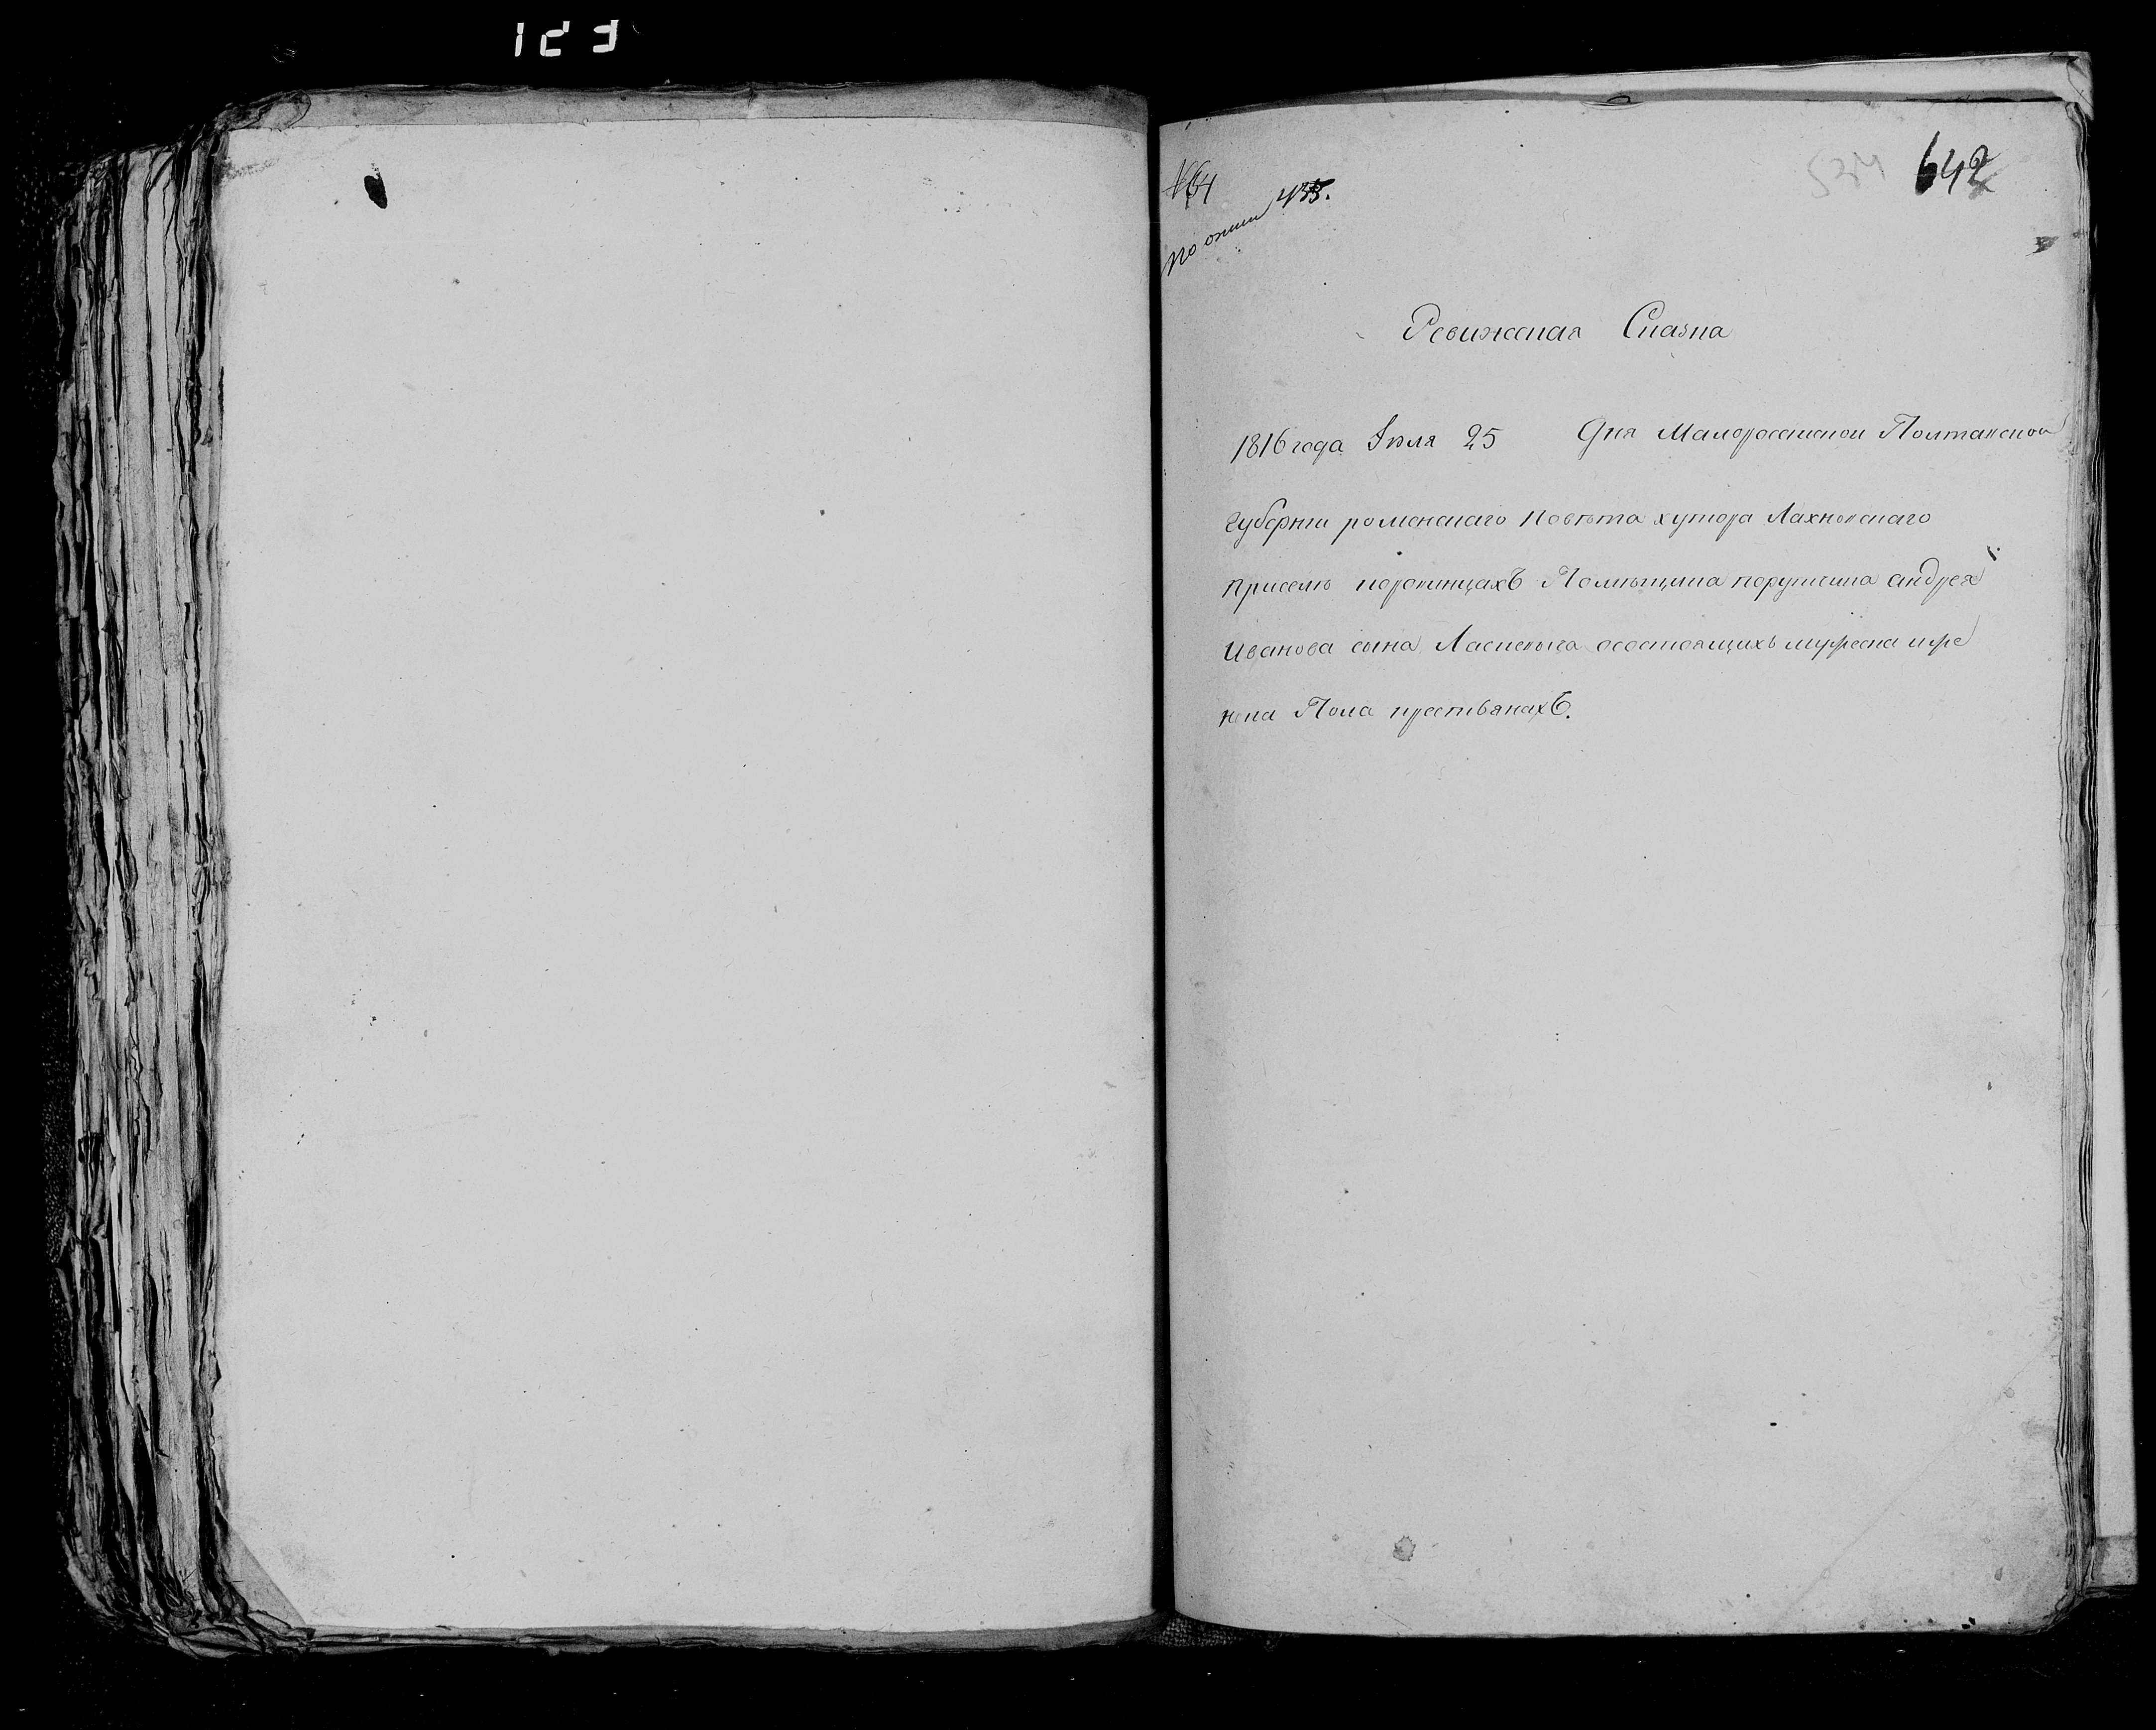 123
642
По описи 435.
Ревижская Сказка
1816 года Іюля 25 Дня Малороссиской Полтавской
Губернии роменскаго Повѣта хутора Лахновскаго
присемъ Помѣщика порутчика андрея
Иванова сына осостоящихъ мужеска иже
нска Пола крестьянахъ.